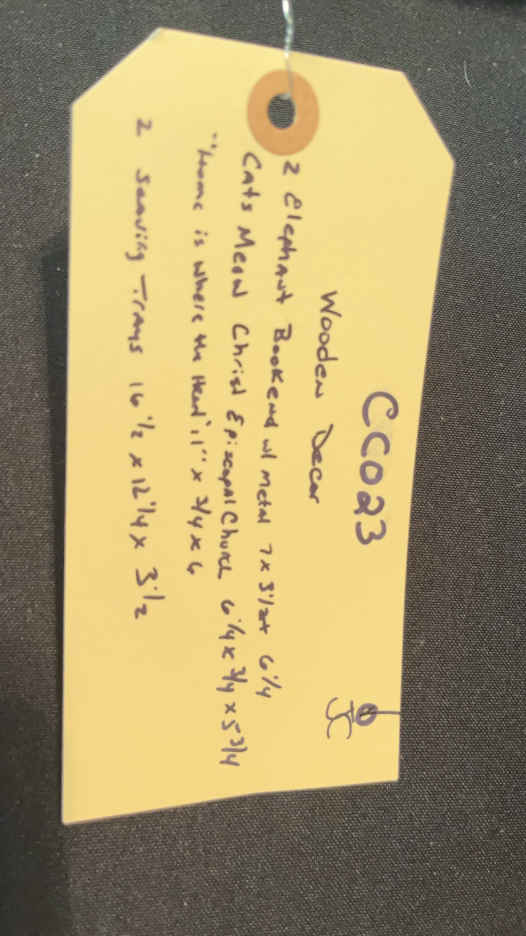 CC023
Wooden Decor
2 Elephant Bookend w/ Metal 7 x 5 1/2 x 6 1/4
Cats Meow Christ Episcopal Church 6 1/4 x 3/4 x 5 3/4
"Home is where the Heart" 11" x 3/4 x 6
2 Seaving Trays 16 1/2 x 12 1/4 x 3 1/2
JC